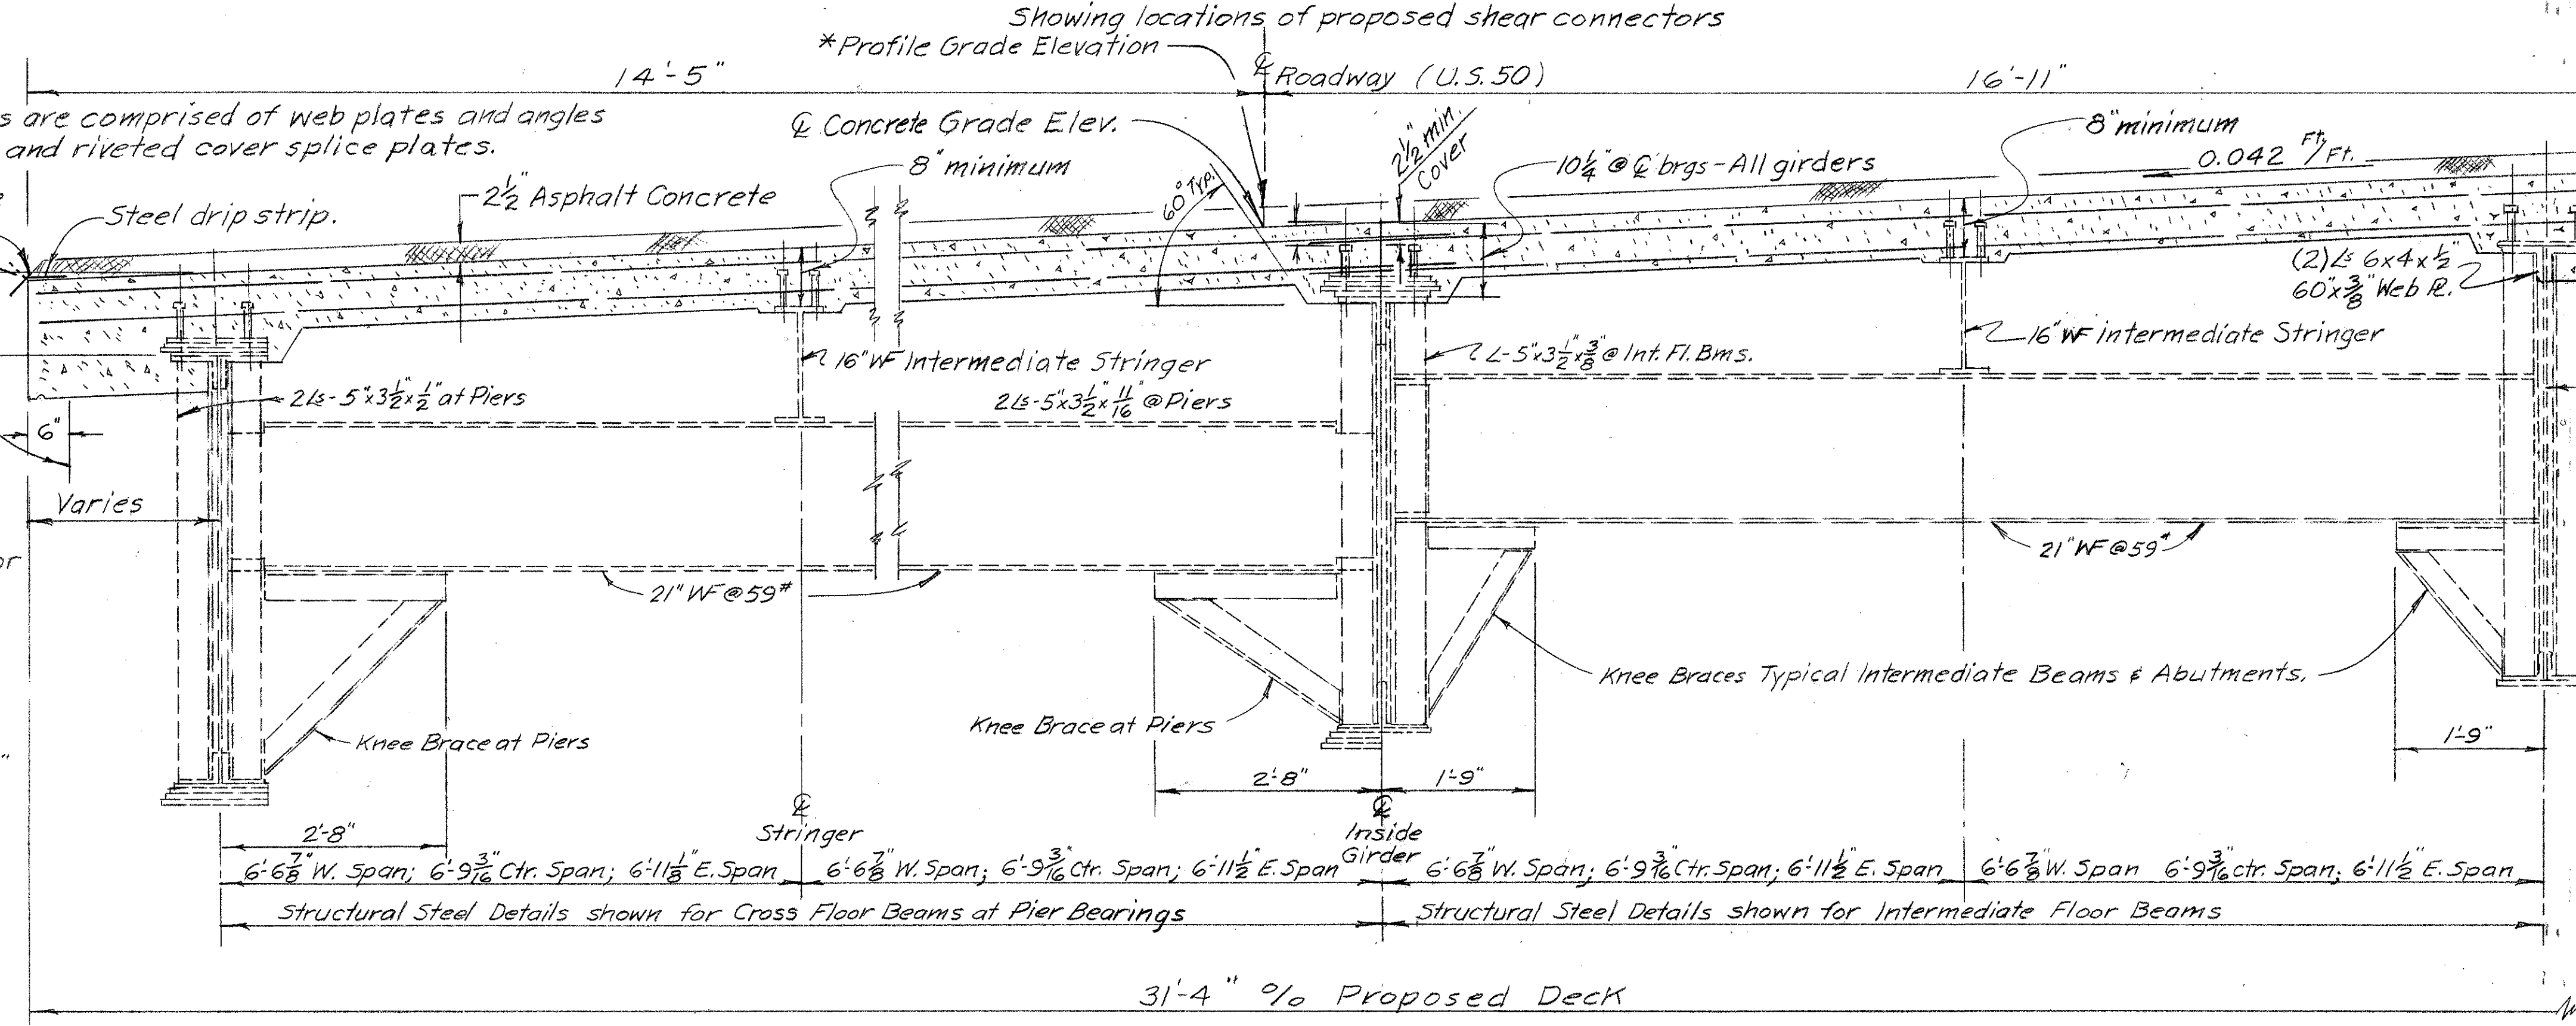 Showing locations of proposed shear connectors
*Profile Grade Elevation
14'-5"
℄ Roadway (U.S.50)
16'-11"
s are comprised of web plates and angles
and riveted cover splice plates.
℄ Concrete Grade Elev.
8" minimum
2½" min.
Cover
10¼" @ ℄ brgs - All girders
8" minimum
0.042 Ft./Ft.
Steel drip strip.
2½" Asphalt Concrete
60° Typ.
(2) Ls 6x4x½"
60"x⅜" Web PL.
16" WF Intermediate Stringer
L-5"x3½"x⅜" @ Int. Fl. Bms.
16" WF intermediate Stringer
2Ls-5"x3½"x½" at Piers
2Ls-5"x3½"x11/16" @ Piers
6"
Varies
or
21" WF @ 59#
21" WF @ 59#
Knee Brace at Piers
Knee Brace at Piers
Knee Braces Typical Intermediate Beams & Abutments.
2'-8"
1'-9"
1'-9"
2'-8"
℄
Stringer
℄
Inside
Girder
6'-6⅞" W. Span; 6'-9 3/16" Ctr. Span; 6'-11⅛" E. Span
6'-6⅞" W. Span; 6'-9 3/16" Ctr. Span; 6'-11½" E. Span
6'-6⅞" W. Span; 6'-9 3/16" Ctr. Span; 6'-11½" E. Span
6'-6⅞" W. Span 6'-9 3/16" ctr. Span; 6'-11½" E. Span
Structural Steel Details shown for Cross Floor Beams at Pier Bearings
Structural Steel Details shown for Intermediate Floor Beams
31'-4" o/o Proposed Deck